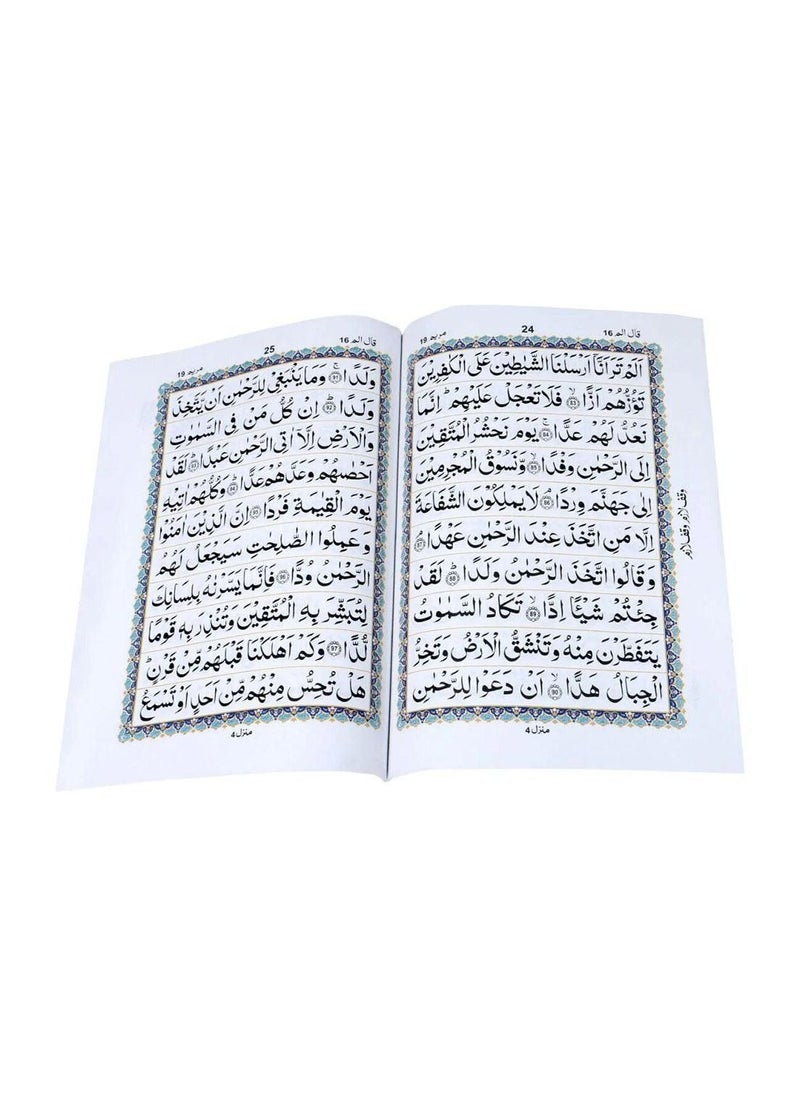 قال الم 16
24
مريم 19
اَلَمْ تَرَ اَنَّاۤ اَرْسَلْنَا الشَّيٰطِيْنَ عَلَى الْكٰفِرِيْنَ
تَؤُزُّهُمْ اَزًّا ۙ﴿83﴾ فَلَا تَعْجَلْ عَلَيْهِمْ ؕ اِنَّمَا
نَعُدُّ لَهُمْ عَدًّا ۚ﴿84﴾ يَوْمَ نَحْشُرُ الْمُتَّقِيْنَ
اِلَى الرَّحْمٰنِ وَفْدًا ۙ﴿85﴾ وَّنَسُوْقُ الْمُجْرِمِيْنَ
اِلٰى جَهَنَّمَ وِرْدًا ۘ﴿86﴾ لَا يَمْلِكُوْنَ الشَّفَاعَةَ
اِلَّا مَنِ اتَّخَذَ عِنْدَ الرَّحْمٰنِ عَهْدًا ۘ﴿87﴾
وَقَالُوا اتَّخَذَ الرَّحْمٰنُ وَلَدًا ؕ﴿88﴾ لَقَدْ
جِئْتُمْ شَيْـًٔا اِدًّا ۙ﴿89﴾ تَكَادُ السَّمٰوٰتُ
يَتَفَطَّرْنَ مِنْهُ وَتَنْشَقُّ الْاَرْضُ وَتَخِرُّ
الْجِبَالُ هَدًّا ۙ﴿90﴾ اَنْ دَعَوْا لِلرَّحْمٰنِ
منزل 4
وقف لازم وقف لازم
قال الم 16
25
مريم 19
وَلَدًا ۚ﴿91﴾ وَمَا يَنْۢبَغِيْ لِلرَّحْمٰنِ اَنْ يَّتَّخِذَ
وَلَدًا ؕ﴿92﴾ اِنْ كُلُّ مَنْ فِي السَّمٰوٰتِ
وَالْاَرْضِ اِلَّاۤ اٰتِي الرَّحْمٰنِ عَبْدًا ؕ﴿93﴾ لَقَدْ
اَحْصٰىهُمْ وَعَدَّهُمْ عَدًّا ؕ﴿94﴾ وَكُلُّهُمْ اٰتِيْهِ
يَوْمَ الْقِيٰمَةِ فَرْدًا ﴿95﴾ اِنَّ الَّذِيْنَ اٰمَنُوْا
وَعَمِلُوا الصّٰلِحٰتِ سَيَجْعَلُ لَهُمُ
الرَّحْمٰنُ وُدًّا ﴿96﴾ فَاِنَّمَا يَسَّرْنٰهُ بِلِسَانِكَ
لِتُبَشِّرَ بِهِ الْمُتَّقِيْنَ وَتُنْذِرَ بِهٖ قَوْمًا
لُّدًّا ﴿97﴾ وَكَمْ اَهْلَكْنَا قَبْلَهُمْ مِّنْ قَرْنٍ ؕ
هَلْ تُحِسُّ مِنْهُمْ مِّنْ اَحَدٍ اَوْ تَسْمَعُ
منزل 4